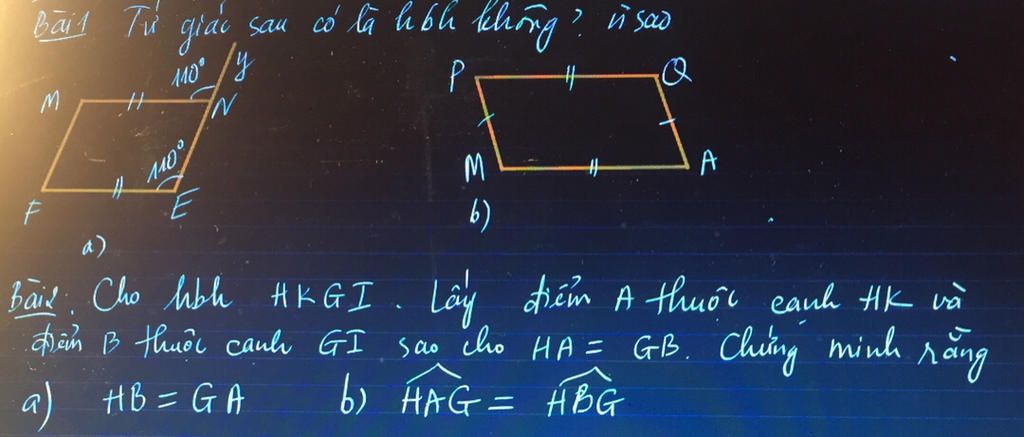 Bài 1 Tứ giác sau có là hbh không? vì sao
110° y
M N
110°
F E
a)
P Q
M A
b)
Bài 2: Cho hbh HKGI. Lấy điểm A thuộc cạnh HK và
điểm B thuộc cạnh GI sao cho HA = GB. Chứng minh rằng
a) HB = GA b) \widehat{HAG} = \widehat{HBG}